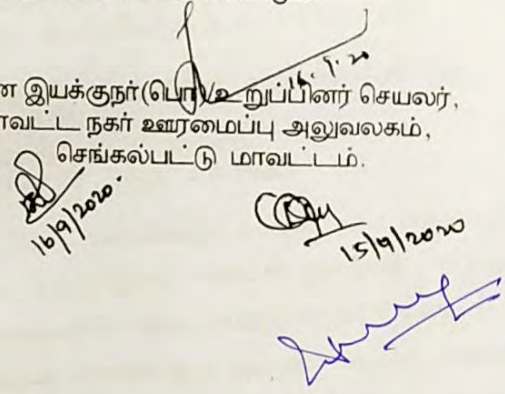 16.9.20
ன இயக்குநர்(பொ)/உறுப்பினர் செயலர்,
ாவட்ட நகர் ஊரமைப்பு அலுவலகம்,
செங்கல்பட்டு மாவட்டம்.
16/9/2020.
15/9/2020